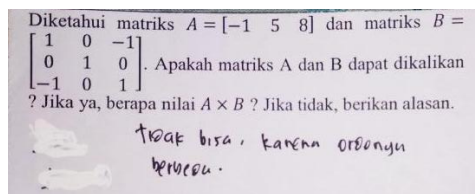 Diketahui matriks A = [−1 5 8] dan matriks B =
[1 0 −1
0 1 0
−1 0 1]. Apakah matriks A dan B dapat dikalikan
? Jika ya, berapa nilai A × B ? Jika tidak, berikan alasan.
tidak bisa, karena ordonya
berbeda.